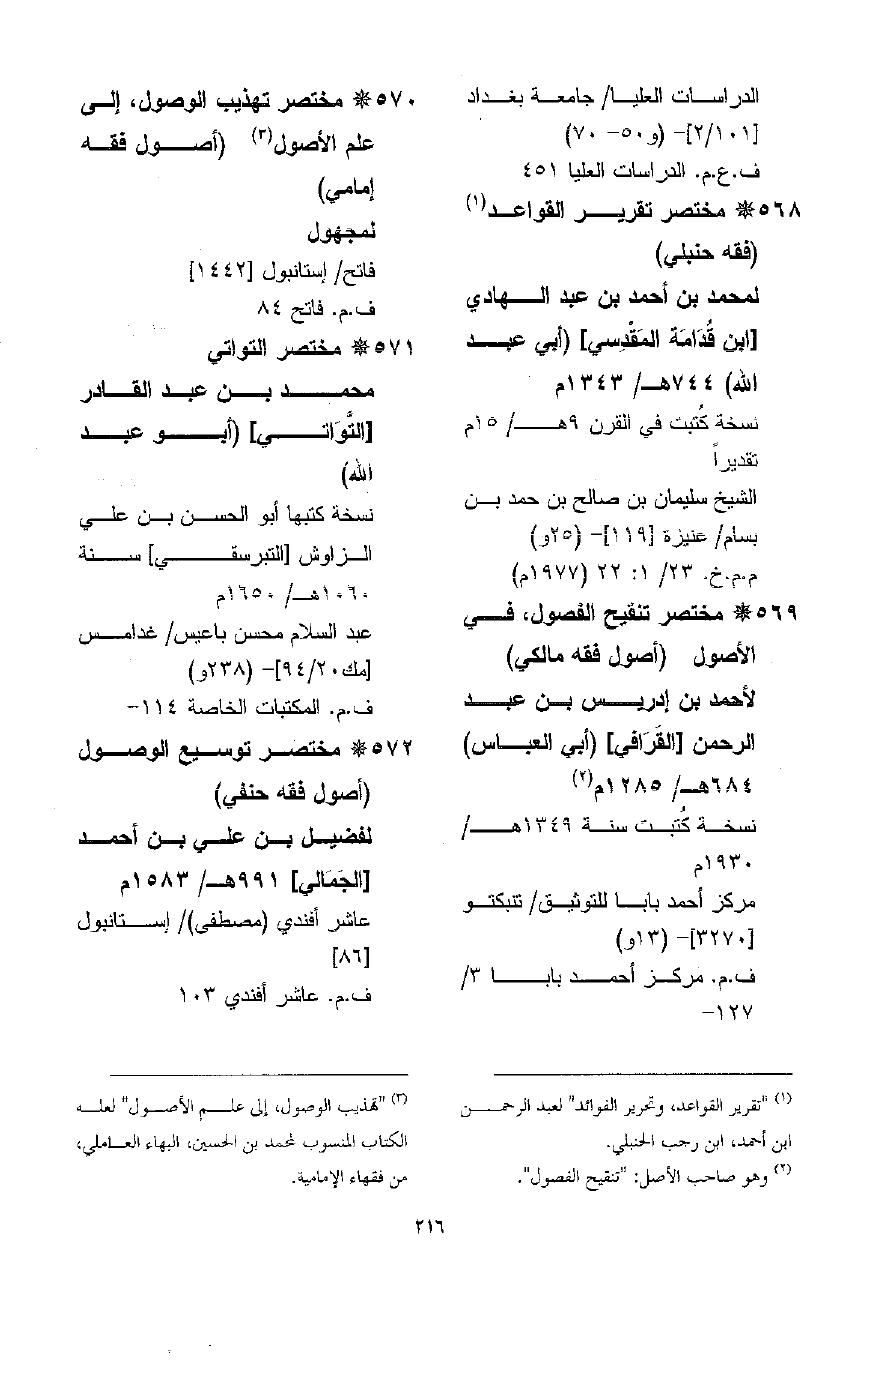 الدراسات العليا/ جامعة بغداد
[٢/١٠١]- (و٥٠- ٧٠)
ف.ع.م. الدراسات العليا ٤٥١
٥٦٨* مختصر تقرير القواعد(١)
(فقه حنبلي)
لمحمد بن أحمد بن عبد الهادي
[ابن قُدَامَة المَقْدِسي] (أبي عبد
الله) ٧٤٤هـ/ ١٣٤٣م
نسخة كُتبت في القرن ٩هـ/ ١٥م
تقديراً
الشيخ سليمان بن صالح بن حمد بن
بسام/ عنيزة [١١٩]- (٢٥و)
م.م.خ. ٢٣/ ١: ٢٢ (١٩٧٧م)
٥٦٩* مختصر تنقيح الفصول، في
الأصول (أصول فقه مالكي)
لأحمد بن إدريس بن عبد
الرحمن [القَرَافي] (أبي العباس)
٦٨٤هـ/ ١٢٨٥م(٢)
نسخة كُتبت سنة ١٣٤٩هـ/
١٩٣٠م
مركز أحمد بابا للتوثيق/ تنبكتو
[٣٢٧٠]- (١٣و)
ف.م. مركز أحمد بابا ٣/
١٢٧-
٥٧٠* مختصر تهذيب الوصول، إلى
علم الأصول(٣) (أصول فقه
إمامي)
لمجهول
فاتح/ إستانبول [١٤٤٢]
ف.م. فاتح ٨٤
٥٧١* مختصر التواتي
محمد بن عبد القادر
[التَّوَاتي] (أبو عبد
الله)
نسخة كتبها أبو الحسن بن علي
الزاوش [التبرسقي] سنة
١٠٦٠هـ/ ١٦٥٠م
عبد السلام محسن باعيس/ غدامس
[مك٩٤/٢٠]- (٢٣٨و)
ف.م. المكتبات الخاصة ١١٤-
٥٧٢* مختصر توسيع الوصول
(أصول فقه حنفي)
لفضيل بن علي بن أحمد
[الجَمَالي] ٩٩١هـ/ ١٥٨٣م
عاشر أفندي (مصطفى)/ إستانبول
[٨٦]
ف.م. عاشر أفندي ١٠٣
(١) "تقرير القواعد، وتحرير الفوائد" لعبد الرحمن
ابن أحمد، ابن رجب الحنبلي.
(٢) وهو صاحب الأصل: "تنقيح الفصول".
(٣) "تهذيب الوصول، إلى علم الأصول" لعله
الكتاب المنسوب لمحمد بن الحسين، البهاء العاملي،
من فقهاء الإمامية.
٢١٦